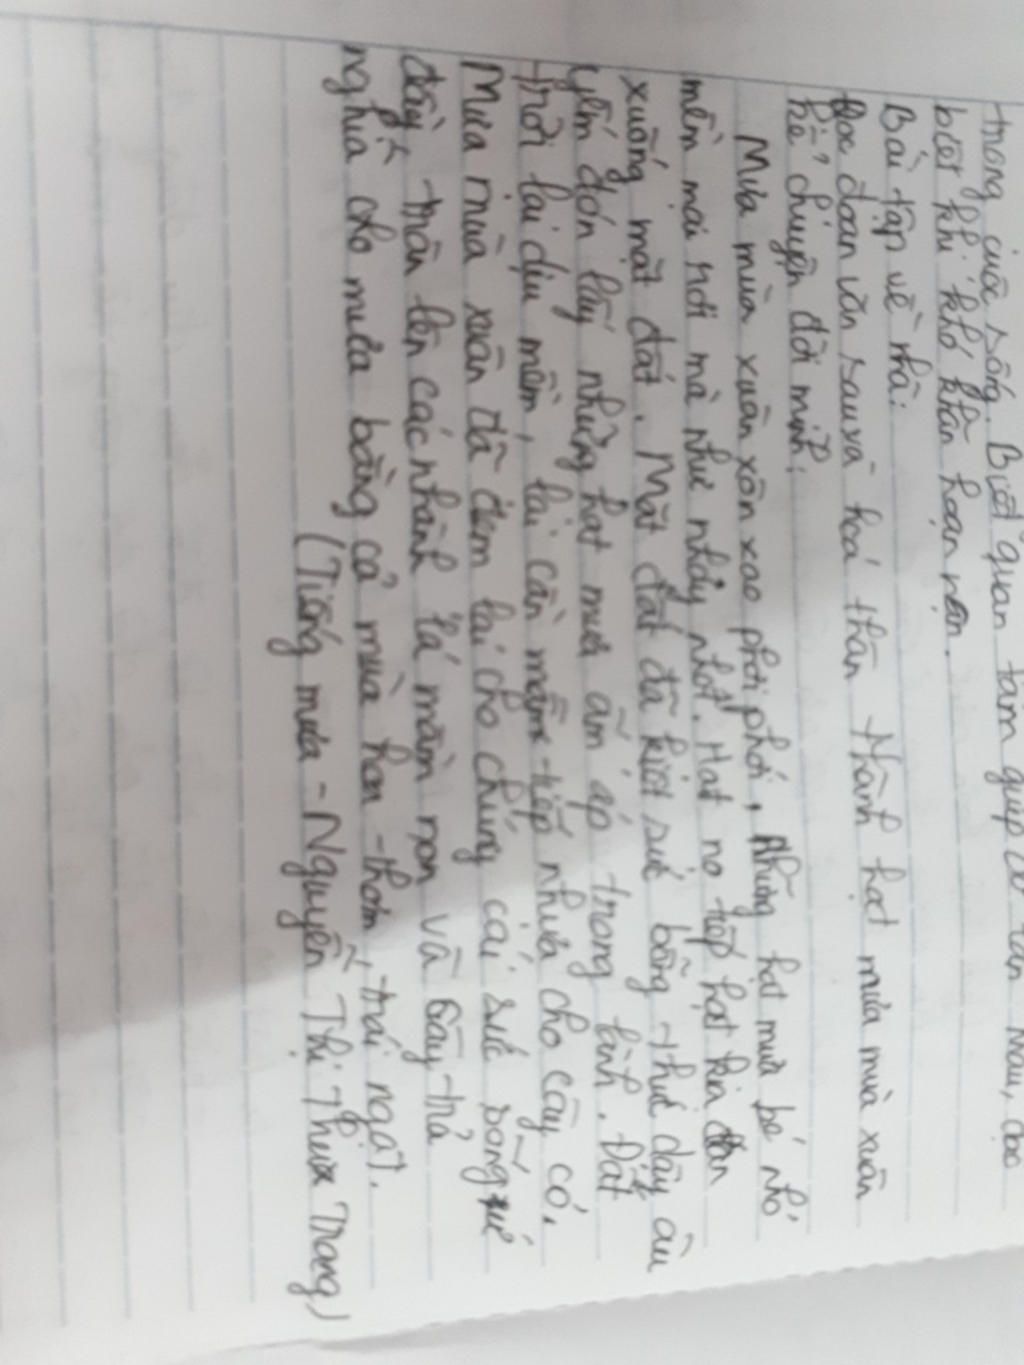 trong cuộc sống. Biết quan tâm giúp đỡ lẫn nhau, đặc
biệt khi khó khăn hoạn nạn.
Bài tập về nhà:
Đọc đoạn văn sau và hoá thân thành hạt mưa mùa xuân
kể chuyện đời mình:
Mưa mùa xuân xôn xao phơi phới, những hạt mưa bé nhỏ
mềm mại rơi mà như nhảy nhót. Hạt nọ tiếp hạt kia đan
xuống mặt đất. Mặt đất đã kiệt sức bỗng thức dậy âu
yếm đón lấy những hạt mưa ấm áp trong lành. Đất
trời lại dịu mềm, lại cần mẫn tiếp nhựa cho cây cỏ.
Mưa mùa xuân đã đem lại cho chúng cái sức sống ứ
đầy, tràn lên các nhánh lá mầm non và cây trả
nghĩa cho mưa bằng cả mùa hoa thơm, trái ngọt.
(Tiếng mưa - Nguyễn Thị Thu Trang)